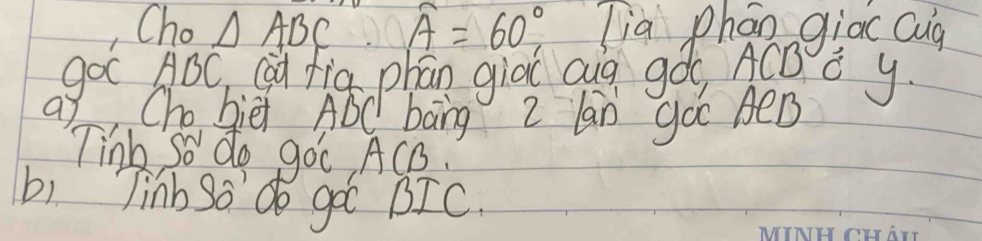 Cho Δ ABC. Â = 60° Tia phân giác của
góc ABC cắt tia phân giác của góc ACB ở y.
a) Cho biết ABC bằng 2 lần góc ACB
Tính số đo góc ACB.
b) Tính số đo góc BIC.
MINH CHÂU